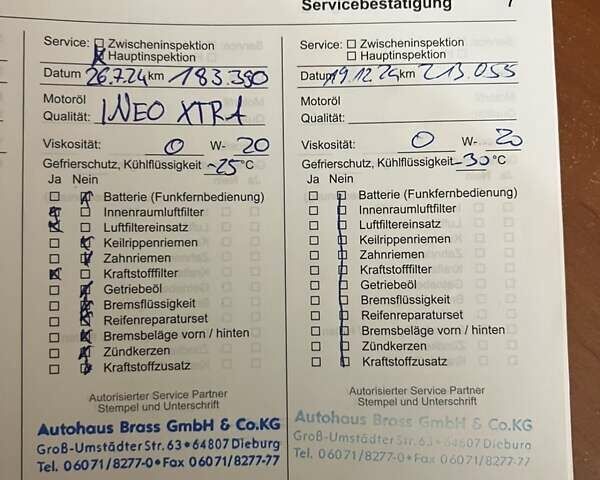 Servicebestätigung 7
Service: Zwischeninspektion
Hauptinspektion
Datum 26.7.24 km 183.390
Motoröl
Qualität: INEO XTRA
Viskosität: 0 W- 20
Gefrierschutz, Kühlflüssigkeit -25 °C
Ja Nein
Batterie (Funkfernbedienung)
Innenraumluftfilter
Luftfiltereinsatz
Keilrippenriemen
Zahnriemen
Kraftstofffilter
Getriebeöl
Bremsflüssigkeit
Reifenreparaturset
Bremsbeläge vorn / hinten
Zündkerzen
Kraftstoffzusatz
Autorisierter Service Partner
Stempel und Unterschrift
Autohaus Brass GmbH & Co.KG
Groß-Umstädter Str. 63 • 64807 Dieburg
Tel. 06071/8277-0 • Fax 06071/8277-77
Service: Zwischeninspektion
Hauptinspektion
Datum 19.12.24 km 213.055
Motoröl
Qualität:
Viskosität: 0 W- 20
Gefrierschutz, Kühlflüssigkeit -30 °C
Ja Nein
Batterie (Funkfernbedienung)
Innenraumluftfilter
Luftfiltereinsatz
Keilrippenriemen
Zahnriemen
Kraftstofffilter
Getriebeöl
Bremsflüssigkeit
Reifenreparaturset
Bremsbeläge vorn / hinten
Zündkerzen
Kraftstoffzusatz
Autorisierter Service Partner
Stempel und Unterschrift
Autohaus Brass GmbH & Co.KG
Groß-Umstädter Str. 63 • 64807 Dieburg
Tel. 06071/8277-0 • Fax 06071/8277-77